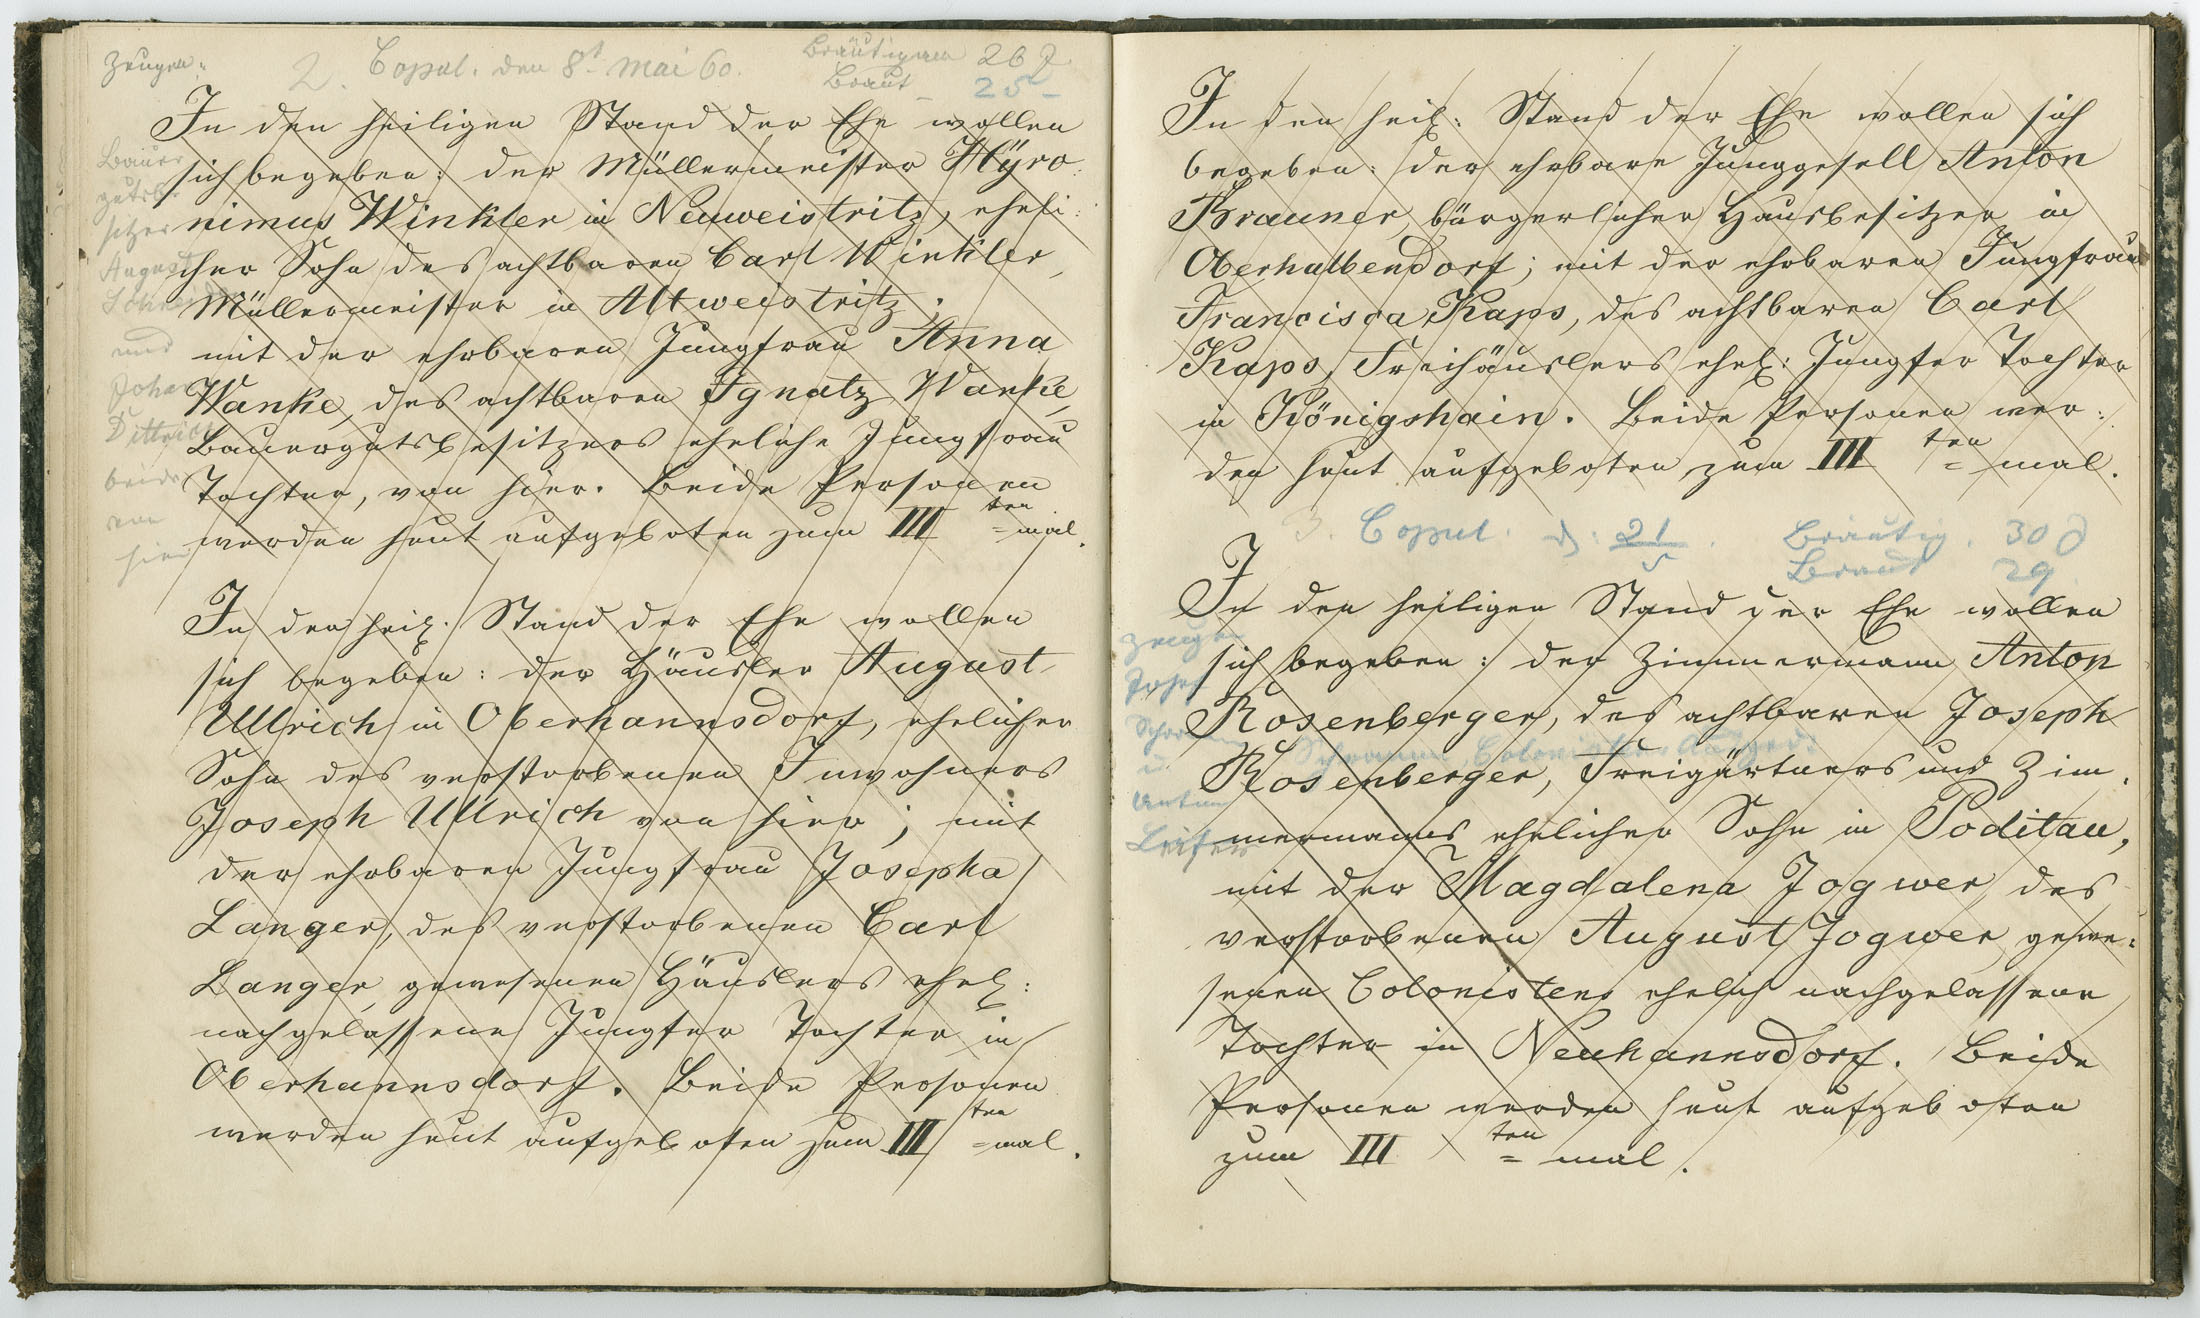 Zeugen:
2. Copul. den 8t. Mai 60.
Bräutigam 26 J.
Braut – 25 –
In den heiligen Stand der Ehe wollen
sich begeben: der Müllermeister Hÿro-
nimus Winkler in Neuweistritz, eheli-
cher Sohn des achtbaren Carl Winkler,
Müllermeister in Altweistritz;
mit der ehrbaren Jungfrau Anna
Wanke, des achtbaren Ignatz Wanke,
Bauergutsbesitzers eheliche Jungfrau
Tochter, von hier. Beide Personen
werden heut aufgeboten zum III ten = mal.
Bauer
gutsbe
sitzer
August
und
Johan
Dittrich
beide
von
hier
In den heil. Stand der Ehe wollen
sich begeben: der Häusler August
Ullrich in Oberhannsdorf, ehelicher
Sohn des verstorbenen Inwohners
Joseph Ullrich von hier; mit
der ehrbaren Jungfrau Josepha
Langer, des verstorbenen Carl
Langer, gewesenen Häuslers ehel:
nachgelassene Jungfer Tochter in
Oberhannsdorf. Beide Personen
werden heut aufgeboten zum III ten = mal.
In den heil: Stand der Ehe wollen sich
begeben: der ehrbare Junggesell Anton
Brauner, bürgerlicher Hausbesitzer in
Oberhalbendorf; mit der ehrbaren Jungfrau
Francisca Kaps, des achtbaren Carl
Kaps, Freihäuslers ehel: Jungfer Tochter
in Königshain. Beide Personen wer-
den heut aufgeboten zum III ten = mal.
3. Copul. d: 21/5.
Bräutig. 30 J
Braut 29
In den heiligen Stand der Ehe wollen
sich begeben: der Zimmermann Anton
Rosenberger, des achtbaren Joseph
Schramm, Colonist
Rosenberger, Freigärtners und Zim-
mermanns ehelicher Sohn in Poditau,
mit der Magdalena Jogwer, des
verstorbenen August Jogwer, gewe-
senen Colonistens ehelich nachgelassene
Tochter in Neuhannsdorf. Beide
Personen werden heut aufgeboten
zum III ten = mal.
Zeugen
Josef
Schramm
u.
Anton